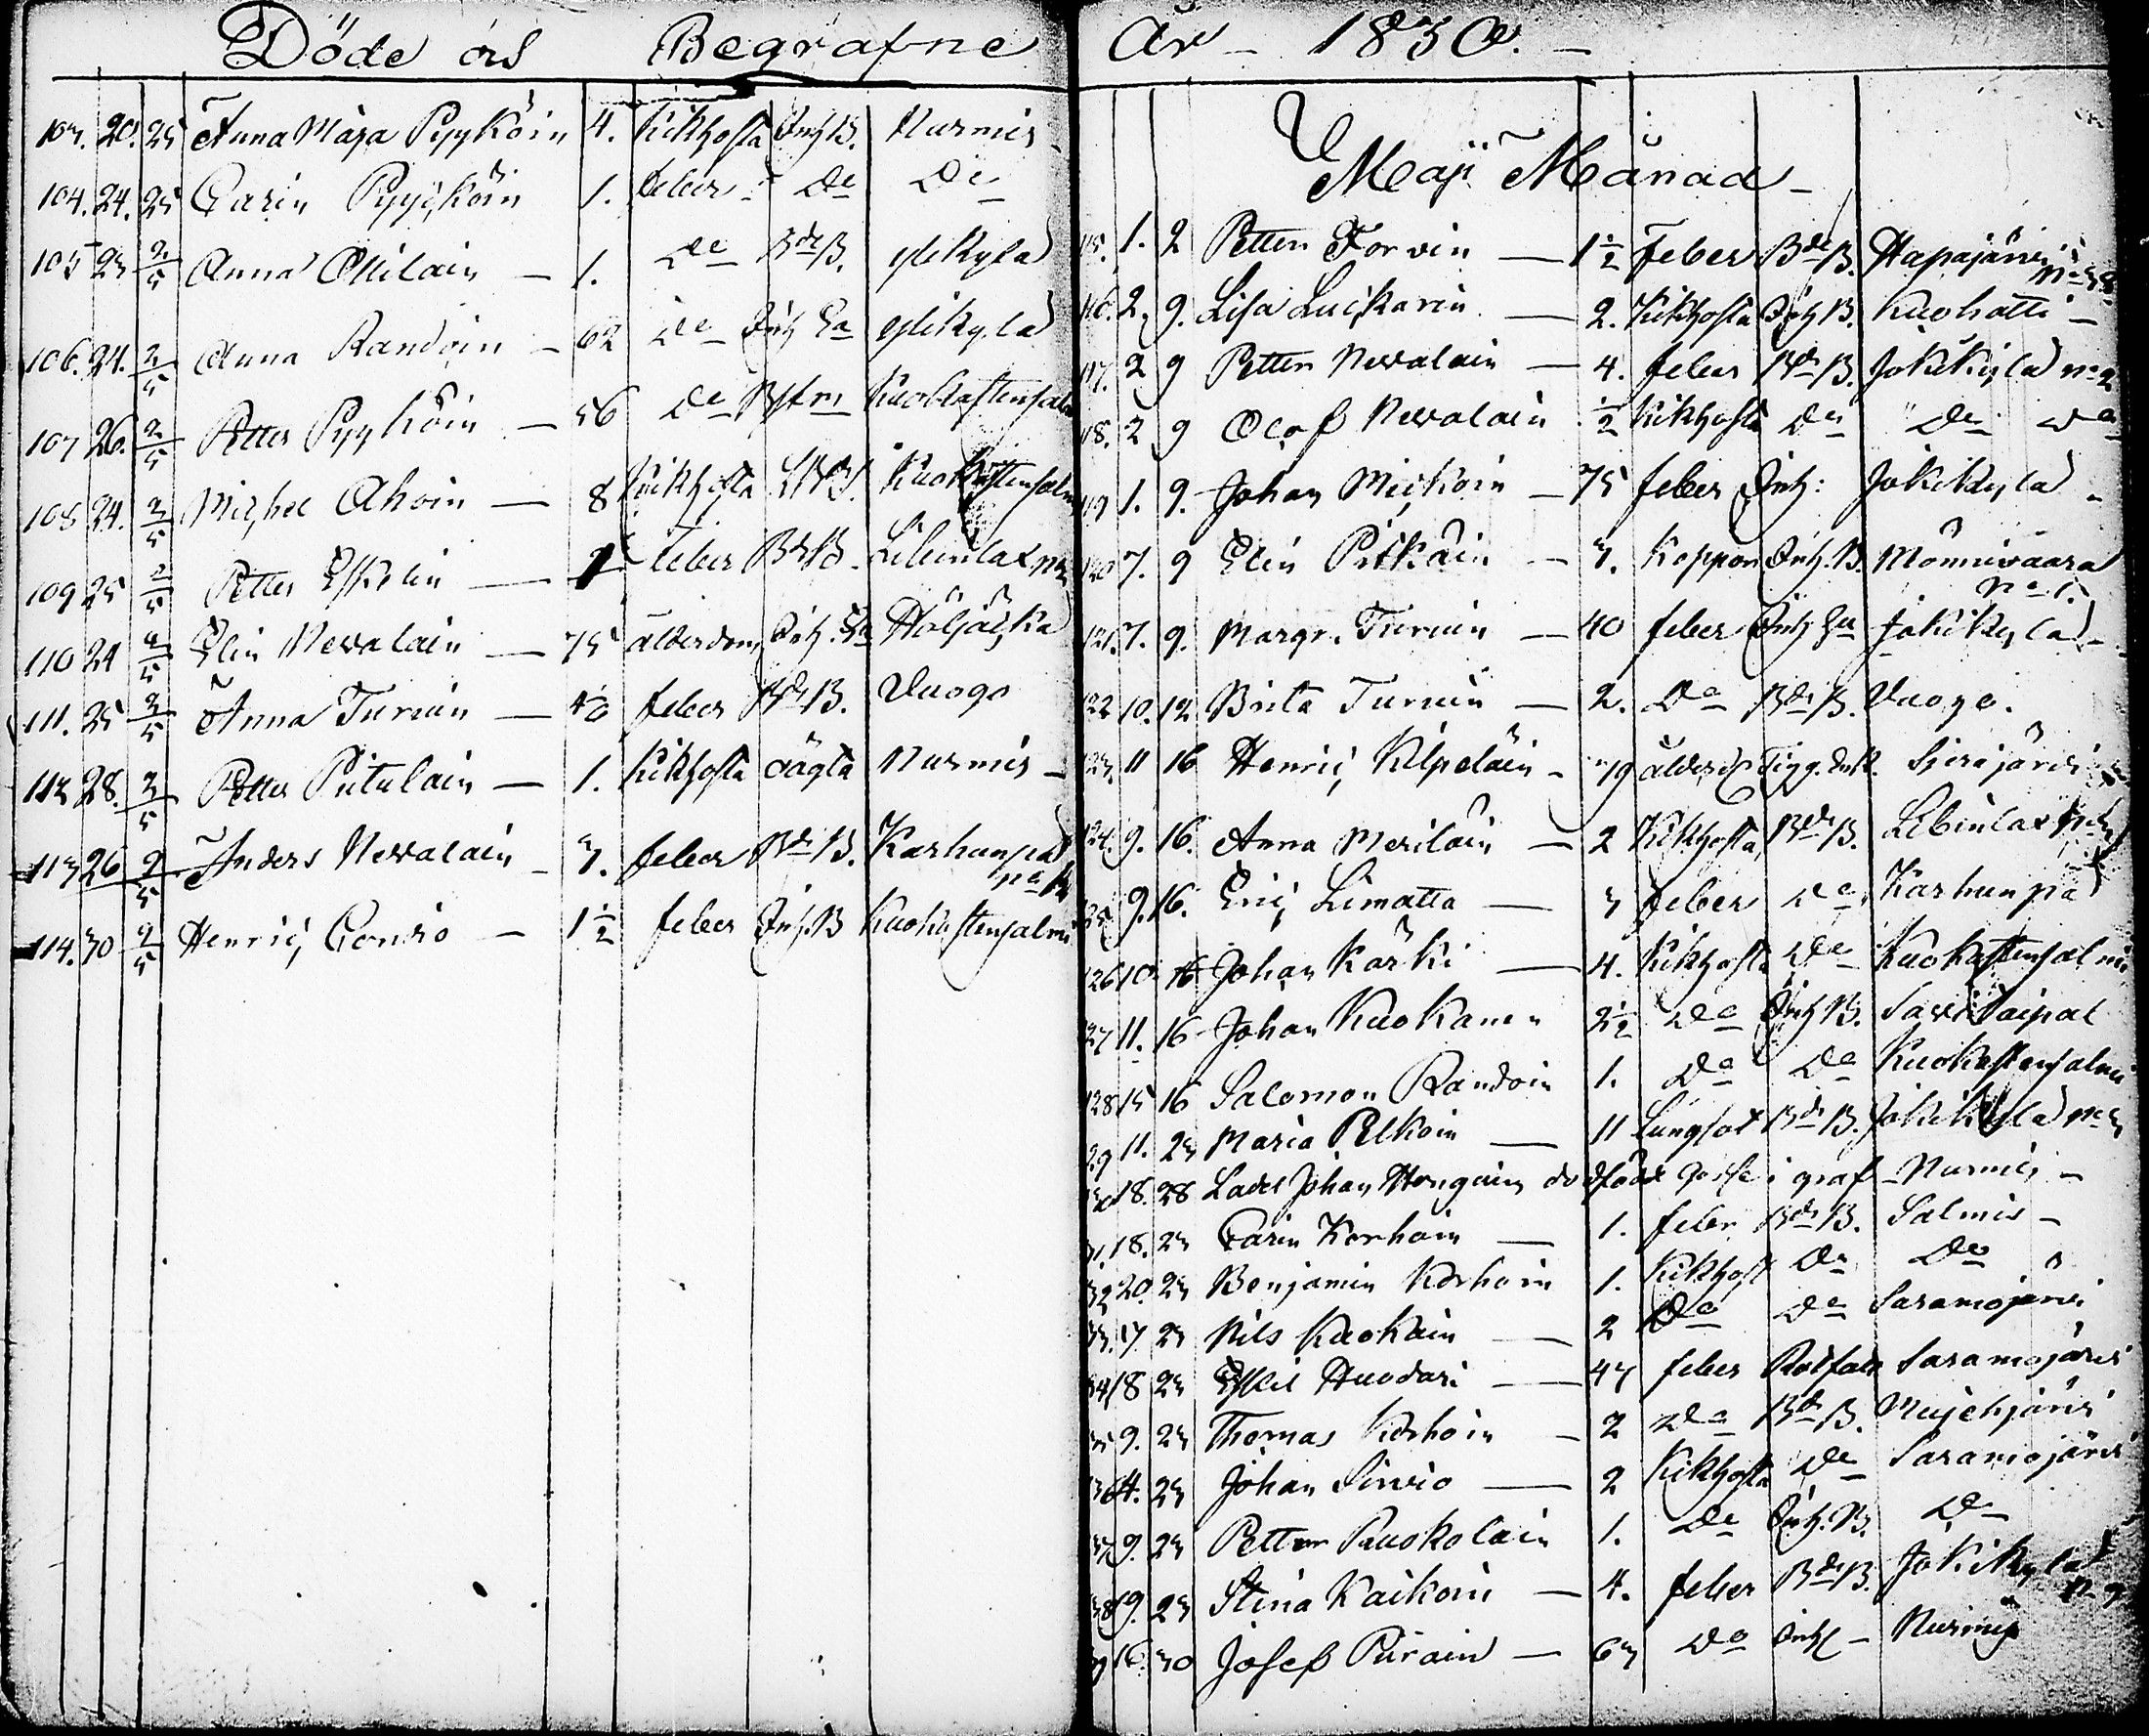 Döde och Begrafne
103. 20. 25 Anna Maja Pyyköin 4. Kikhosta Inh. B. Nurmis
104. 24. 25 Carin Pyyköin 1. feber Do Do
105 23 2/5 Anna Ollilain — 1. Do Bde B. Ylikylä
106. 24. 2/5 Anna Randoin — 62 Do Inh Ea Ylikylä
107 26. 2/5 Petter Pyyköin — 56 Do Kuokastensalmi
108 24. 2/5 Michel Ahoin — 8 Kikhosta Kuokastensalmi
109 25 2/5 Petter Eskelin — 1 feber Bde B. Libinlax
110 24 2/5 Elin Nevalain — 75 ålderdom Inh. Ea Höljäkkä
111. 25 2/5 Anna Turuin — feber Bde B. Vuogo
112 28. 2/5 Petter Pitulain — 1. Kikhosta oägta Nurmis —
113 26 2/5 Anders Nevalain — 3. feber Bde B. Karhunpä
114. 30 2/5 Henric Conro — 1½ feber Inh. B Kuokastensalmi
År — 1830. —
Maji Månad —
115. 1. 2 Petter Torvin — 1½ Feber Bde B. Hapajärvi
116. 2. 9. Lisa Luickarin — 2. Kikhosta Inh B. Kuohatti —
117. 2 9 Petter Nevalain — 4. feber Bde B. Jokikylä No 2
118. 2 9 Olof Nevalain ½ Kikhosta Do Do Do
119 1. 9. Johan Mickoin — 75 feber Inh: Jokikylä
120 7. 9 Elin Pitkäin — 3. Koppor Inh. B. Mönnivaara
No 1.
121. 7. 9. Margr. Turuin — 40 feber Inh Ea Jokikylä —
122 10. 12 Brita Turuin — 2. Do Bde B. Vuogo.
123. 11 16 Henric Kilpeläin — 79 ålder Tigg. Enk. Sivajärvi
124. 9. 16. Anna Meriläin — 2 Kikhosta Bde B. Libinlax
125 9. 16. Eric Limatta — 3 feber Do Karhunpä
126 10 16 Johan Kärki — 4. Kikhosta Do Kuokastensalmi
127 11. 16 Johan Kuokanen 2½ Do Inh B. Savikaipal
128 15 16 Salomon Randoin 1. Do Do Kuokastensalmi
129 11. 23 Maria Pelkoin — 11 Lungsot Bde B. Jokikylä No 3
130 18. 28 Lades Johan Hengains dödfödt gosse i graf Nurmis —
131. 18. 23 Carin Korhoin — 1. feber Bde B. Salmis —
132 20. 23 Benjamin Korhoin 1. Kikhost Do Do
133. 17. 23 Nils Kuokain — 2 Do Do Saramojärvi
134 18 23 Eskil Huovari — 47 feber Rotfatt. Saramojärvi
135 9. 23 Thomas Korhoin — 2 Do Bde B. Mujehjärvi
136 4. 23 Johan Sirviö — 2 Kikhosta Do Saramojärvi
137 9. 23 Petter Puskolain 1. Do Inh. B. Do
138 9. 23 Stina Kaikoin — 4. feber Bde B. Jokikylä
139 16. 30 Josef Piirain — 63 Do Inh — Nurmis